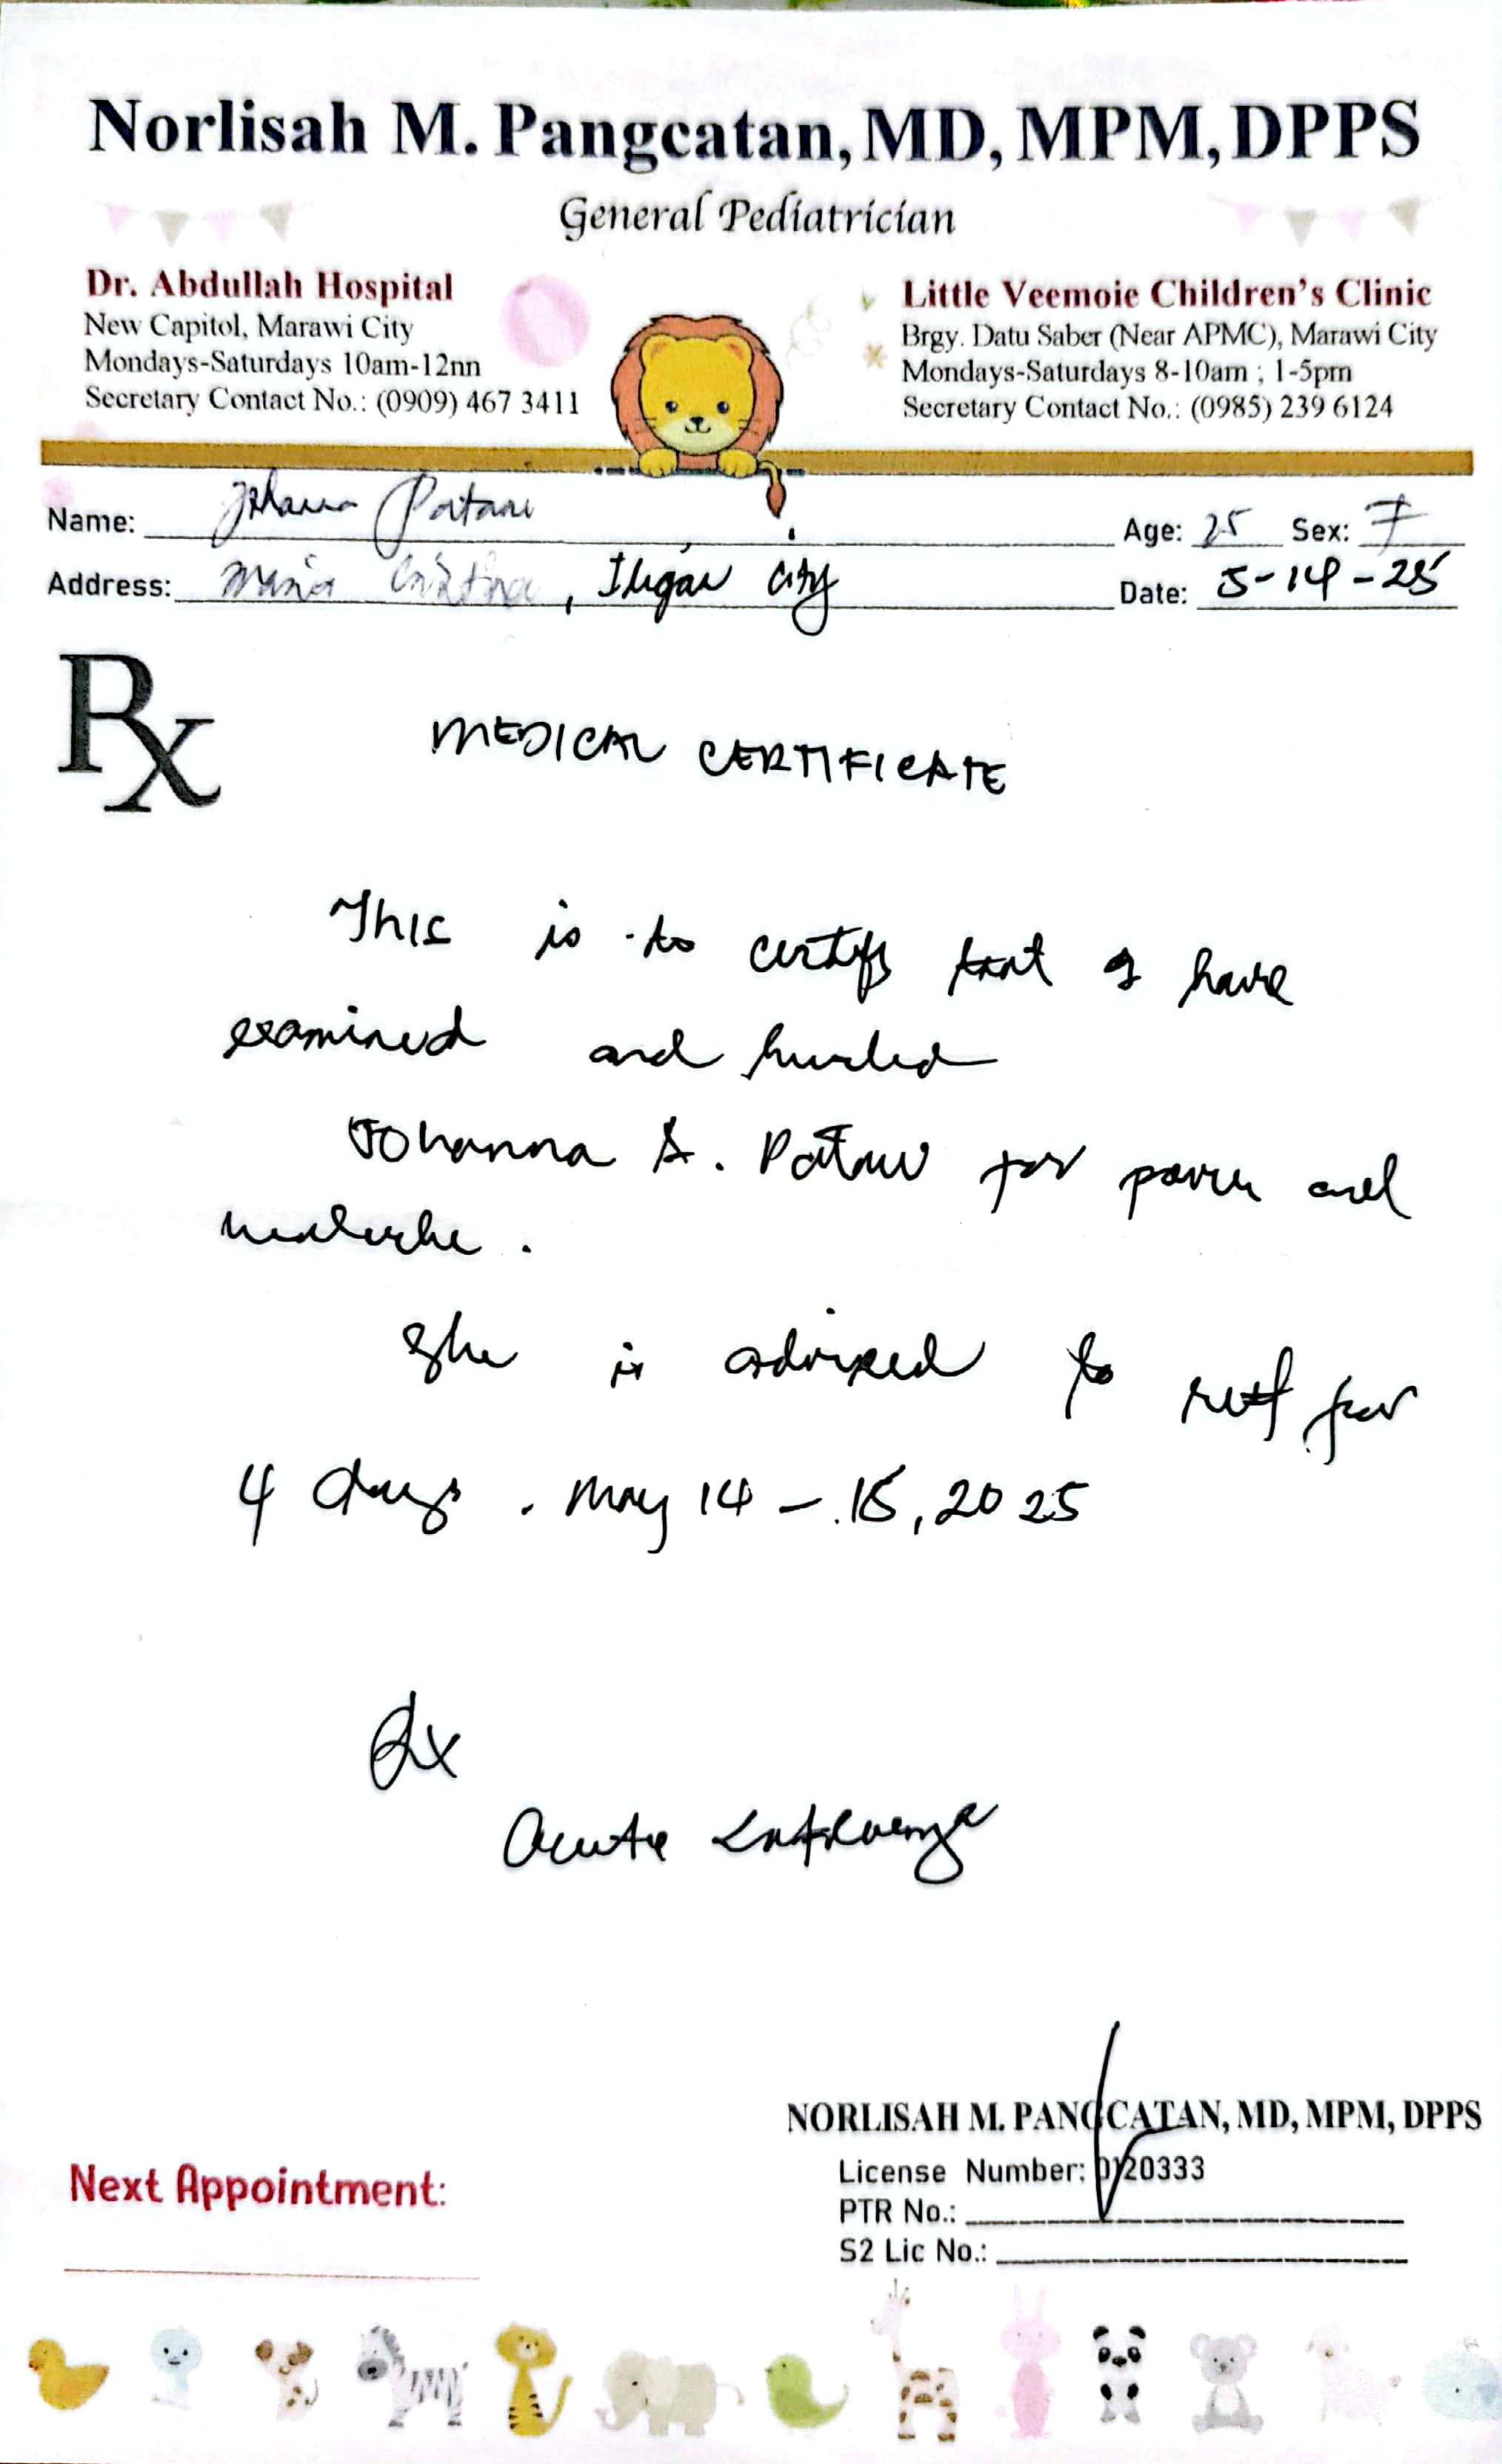 Norlisah M. Pangcatan, MD, MPM, DPPS
General Pediatrician
Dr. Abdullah Hospital
New Capitol, Marawi City
Mondays-Saturdays 10am-12nn
Secretary Contact No.: (0909) 467 3411
Little Veemoie Children's Clinic
Brgy. Datu Saber (Near APMC), Marawi City
Mondays-Saturdays 8-10am ; 1-5pm
Secretary Contact No.: (0985) 239 6124
Name: Age: 25 Sex: F
Address: Maria Cristina, Iligan City Date: 5-14-25
Rx
MEDICAL CERTIFICATE
This is to certify that I have
examined and
Johanna A. for and
She is advised to rest for
4 days. May 14 - 2025
Dx
Acute Influenza
NORLISAH M. PANGCATAN, MD, MPM, DPPS
License Number: 0120333
PTR No.:
S2 Lic No.:
Next Appointment: